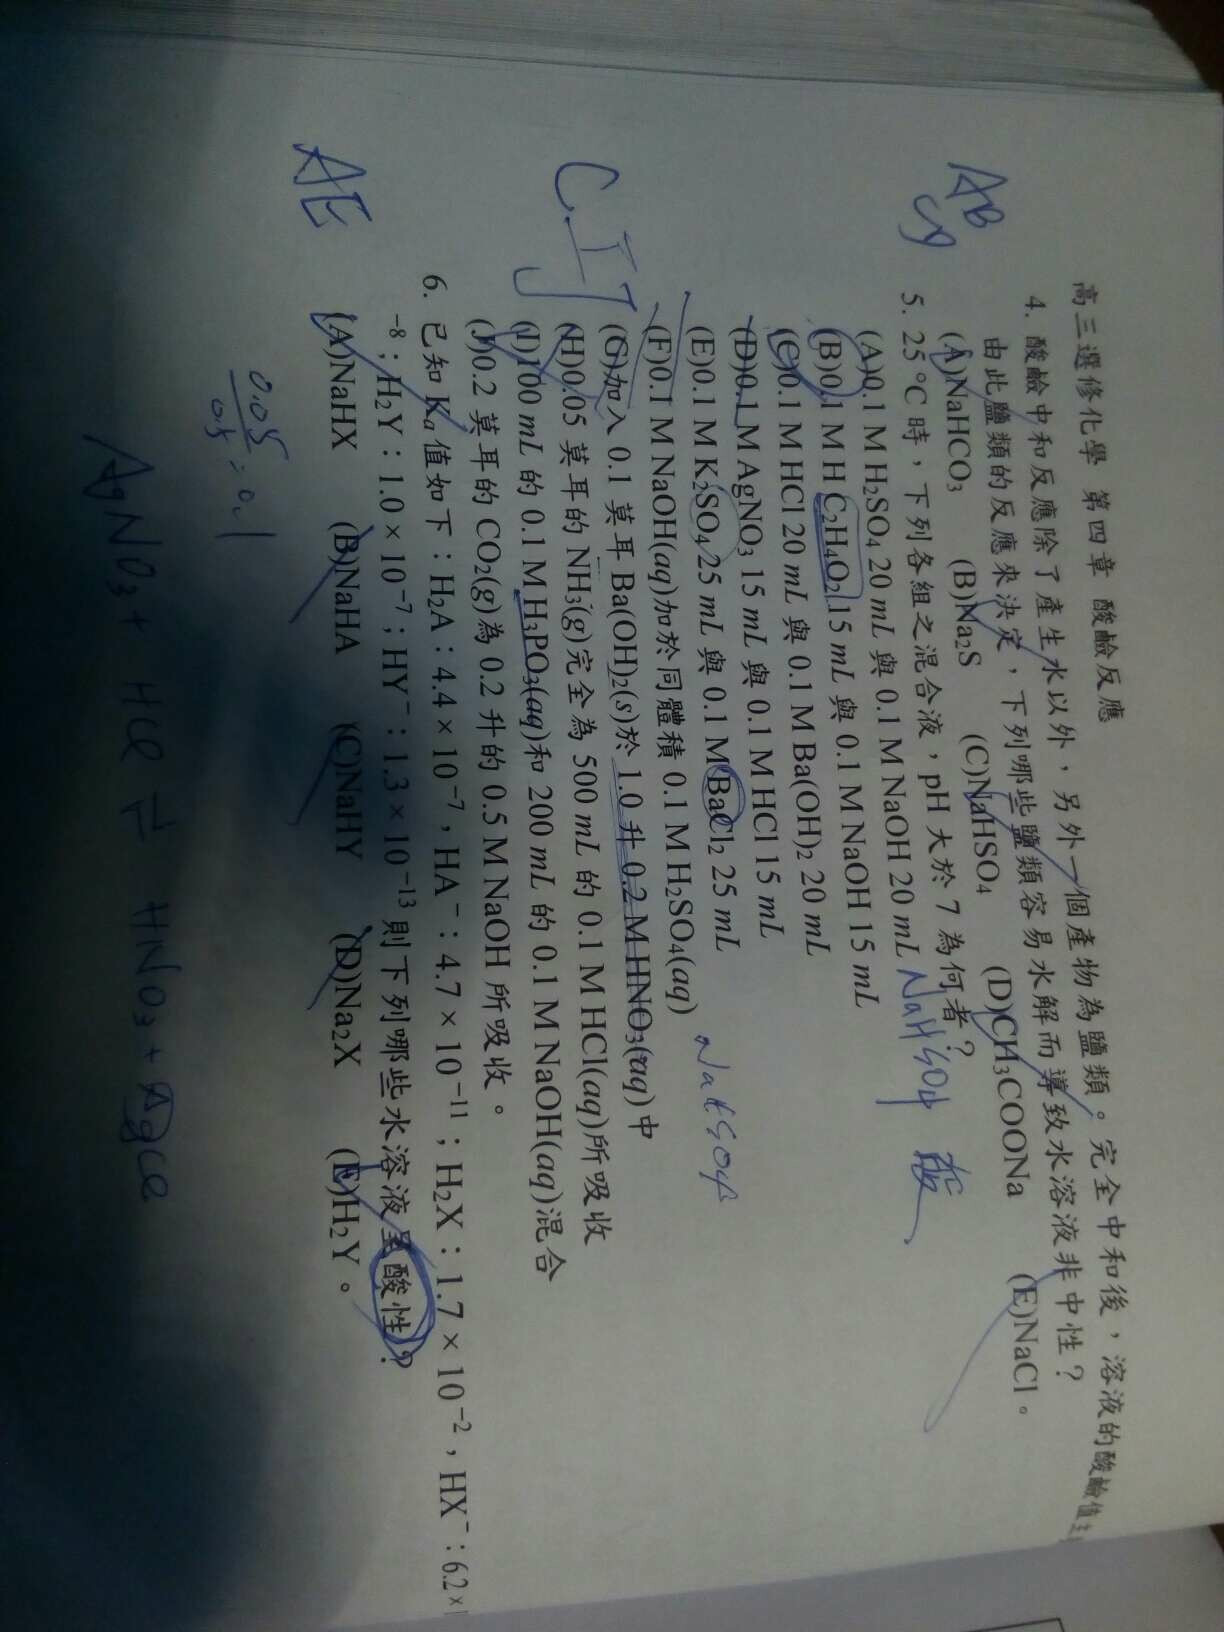 高三選修化學 第四章 酸鹼反應
4. 酸鹼中和反應除了產生水以外，另外一個產物為鹽類。完全中和後，溶液的酸鹼值
由此鹽類的反應來決定，下列哪些鹽類容易水解而導致水溶液非中性？
(A)NaHCO₃ (B)Na₂S (C)NaHSO₄ (D)CH₃COONa (E)NaCl。
AB
CD
5. 25°C時，下列各組之混合液，pH大於7為何者？
(A)0.1 M H₂SO₄ 20 mL 與 0.1 M NaOH 20 mL NaHSO4 酸
(B)0.1 M H C₂H₄O₂ 15 mL 與 0.1 M NaOH 15 mL
(C)0.1 M HCl 20 mL 與 0.1 M Ba(OH)₂ 20 mL
(D)0.1 M AgNO₃ 15 mL 與 0.1 M HCl 15 mL
(E)0.1 M K₂SO₄ 25 mL 與 0.1 M BaCl₂ 25 mL
(F)0.1 M NaOH(aq)加於同體積 0.1 M H₂SO₄(aq) NaHSO4
(G)加入 0.1 莫耳 Ba(OH)₂(s)於 1.0 升 0.2 M HNO₃(aq)中
(H)0.05 莫耳的 NH₃(g)完全為 500 mL 的 0.1 M HCl(aq)所吸收
(I)100 mL 的 0.1 M H₃PO₃(aq)和 200 mL 的 0.1 M NaOH(aq)混合
(J)0.2 莫耳的 CO₂(g)為 0.2 升的 0.5 M NaOH 所吸收。
C.I J
6. 已知 Kₐ 值如下：H₂A：4.4 × 10⁻⁷，HA⁻：4.7 × 10⁻¹¹；H₂X：1.7 × 10⁻²，HX⁻：6.2 ×
⁻⁸；H₂Y：1.0 × 10⁻⁷；HY⁻：1.3 × 10⁻¹³ 則下列哪些水溶液呈酸性？
(A)NaHX (B)NaHA (C)NaHY (D)Na₂X (E)H₂Y。
AE
0.05
0.5 = 0.1
AgNO3 + HCl ⇌ HNO3 + AgCl